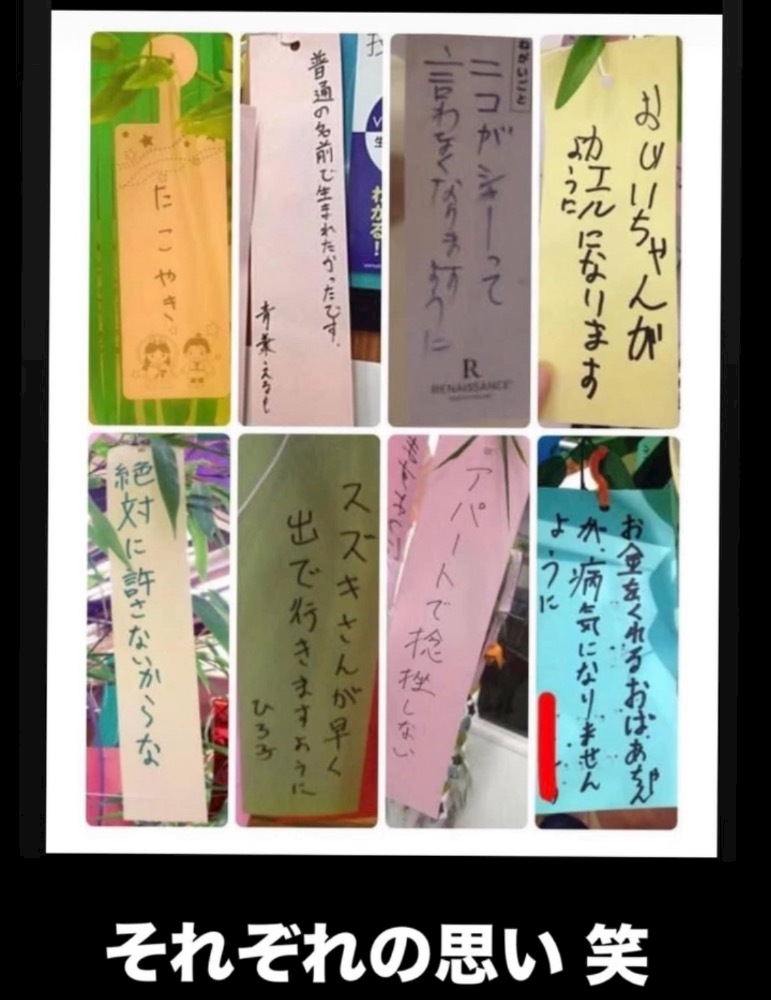 たこやき。
普通の名前で生まれたかったです。
青葉えるも
わかる!
ねがいごと
ニコがシャーって
言わなくなりますように
R
RENAISSANCE
おじいちゃんが
カエルになります
ように
絶対に許さないからな
スズキさんが早く
出て行きますように
ひろみ
アパートで捻挫しない
お金をくれるおばあちゃん
が、病気になりません
ように
それぞれの思い 笑